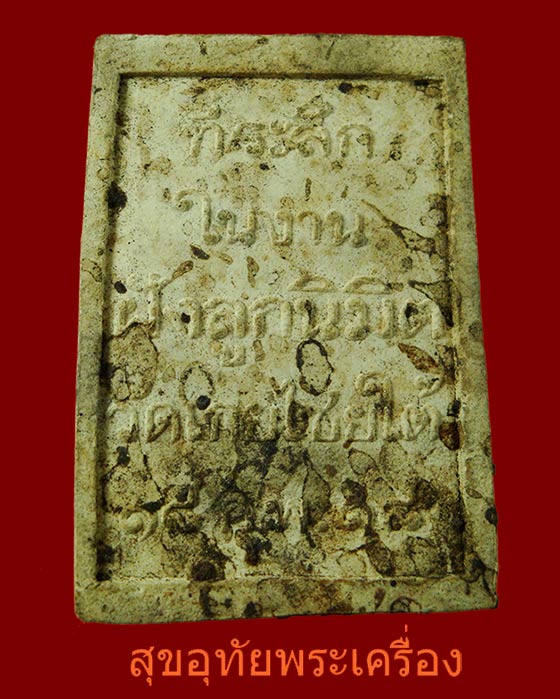 ที่ระลึก
ในงาน
ฝังลูกนิมิต
วัดเกยไชยใต้
สุขอุทัยพระเครื่อง